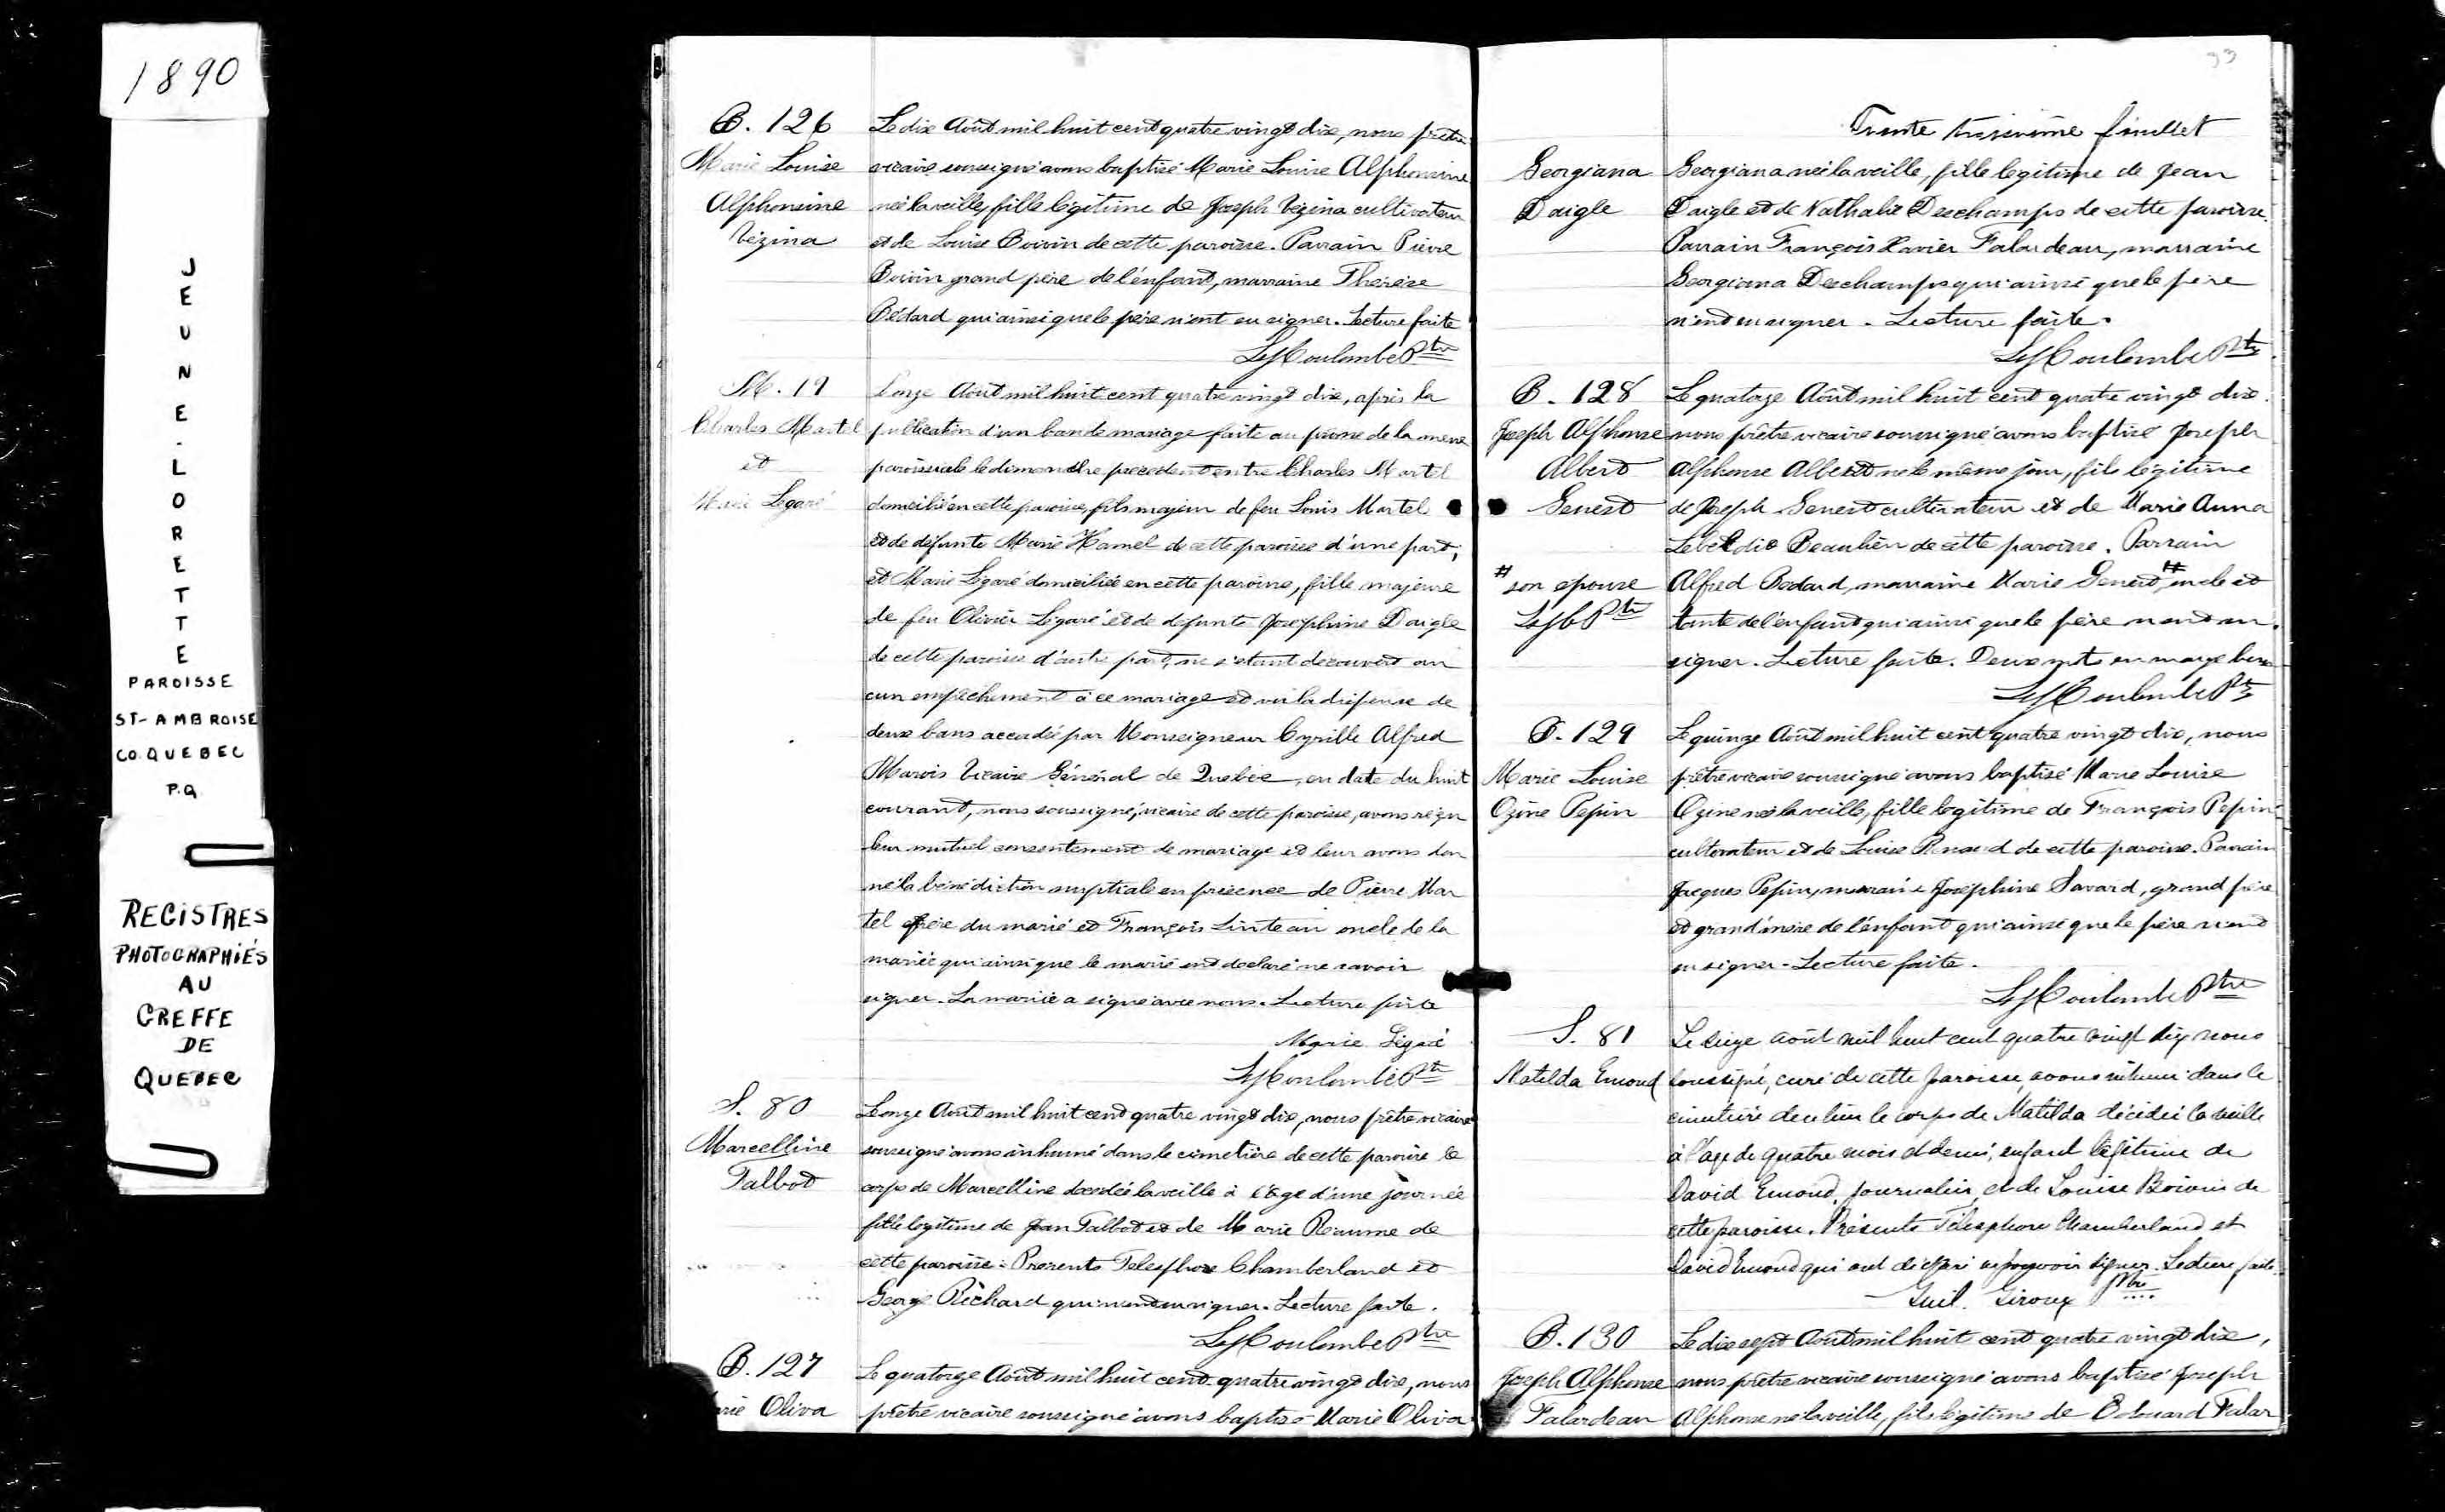 1890
JEUNE-LORETTE
PAROISSE
ST-AMBROISE
CO. QUEBEC
P.Q.
REGISTRES
PHOTOGRAPHIÉS
AU
GREFFE
DE
QUEBEC
B. 126
Marie Louise
Alphonsine
Vézina
Le dix Août mil huit cent quatre vingt dix, nous prêtre
vicaire soussigné avons baptisé Marie Louise Alphonsine
née la veille, fille légitime de Joseph Vézina cultivateur
et de Louise Boivin de cette paroisse. Parrain Pierre
Boivin grand père de l'enfant, marraine Thérèse
Bédard qui ainsi que le père n'ont su signer. Lecture faite
Coulombe Ptre
M. 19
Charles Martel
et
Marie Légaré
L'onze Août mil huit cent quatre vingt dix, après la
publication d'un ban de mariage faite au prône de la messe
paroissiale le dimanche précédent entre Charles Martel
domicilié en cette paroisse, fils majeur de feu Louis Martel
et de défunte Marie Hamel de cette paroisse d'une part,
et Marie Légaré domiciliée en cette paroisse, fille majeure
de feu Olivier Légaré et de défunte Josephine Daigle
de cette paroisse d'autre part, ne s'étant découvert au
cun empêchement à ce mariage et vu la dispense de
deux bans accordée par Monseigneur Cyrille Alfred
Marois Vicaire Général de Québec, en date du huit
courant, nous soussigné, vicaire de cette paroisse, avons reçu
leur mutuel consentement de mariage et leur avons don
né la bénédiction nuptiale en présence de Pierre Mar
tel frère du marié et François Linteau oncle de la
mariée qui ainsi que le marié ont déclaré ne savoir
signer. La mariée a signé avec nous. Lecture faite
Marie Légaré
Coulombe Ptre
S. 80
Marcelline
Talbot
Le onze Août mil huit cent quatre vingt dix, nous prêtre vicaire
soussigné avons inhumé dans le cimetière de cette paroisse le
corps de Marcelline décédée la veille à l'âge d'une journée
fille légitime de Jean Talbot et de Marie Reaume de
cette paroisse. Présents Telesphore Chamberland et
George Richard qui n'ont su signer. Lecture faite.
Coulombe Ptre
B. 127
Oliva
Le quatorze Août mil huit cent quatre vingt dix, nous
prêtre vicaire soussigné avons baptisé Marie Oliva
33
Trente troisième feuillet
Georgiana
Daigle
Georgiana née la veille, fille légitime de Jean
Daigle et de Nathalie Deschamps de cette paroisse.
Parrain François Xavier Falardeau, marraine
Georgiana Deschamps qui ainsi que le père
n'ont su signer. Lecture faite.
Coulombe Ptre
B. 128
Joseph Alphonse
Albert
Genest
# son epouse
Ptre
Le quatorze Août mil huit cent quatre vingt dix
nous prêtre vicaire soussigné avons baptisé Joseph
Alphonse Albert né le même jour, fils légitime
de Joseph Genest cultivateur et de Marie Anna
Beaulieu de cette paroisse. Parrain
Alfred Bedard, marraine Marie Genest, # oncle et
tante de l'enfant qui ainsi que le père n'ont su
signer. Lecture faite. Deux mots en marge bons
Coulombe Ptre
B. 129
Marie Louise
Ozine Pepin
Le quinze Août mil huit cent quatre vingt dix, nous
prêtre vicaire soussigné avons baptisé Marie Louise
Ozine née la veille, fille légitime de François Pepin
cultivateur et de Louise Renaud de cette paroisse. Parrain
Jacques Pepin, marraine Joséphine Savard, grand père
et grand'mère de l'enfant qui ainsi que le père n'ont
su signer. Lecture faite.
Coulombe Ptre
S. 81
Matilda Emond
Le seize août mil huit cent quatre vingt dix nous
soussigné, curé de cette paroisse avons inhumé dans le
cimetière de ce lieu le corps de Matilda décédée la veille
à l'age de quatre mois et demi, enfant légitime de
David Emond, journalier, et de Louise Boivin de
cette paroisse. Présents Télesphore Chamberland et
David Emond qui ont déclaré ne pouvoir signer. Lecture faite.
Guil. Giroux Ptre
B. 130
Joseph Alphonse
Falardeau
Le dix sept Août mil huit cent quatre vingt dix,
nous prêtre vicaire soussigné avons baptisé Joseph
Alphonse né la veille, fils légitime de Edouard Falar